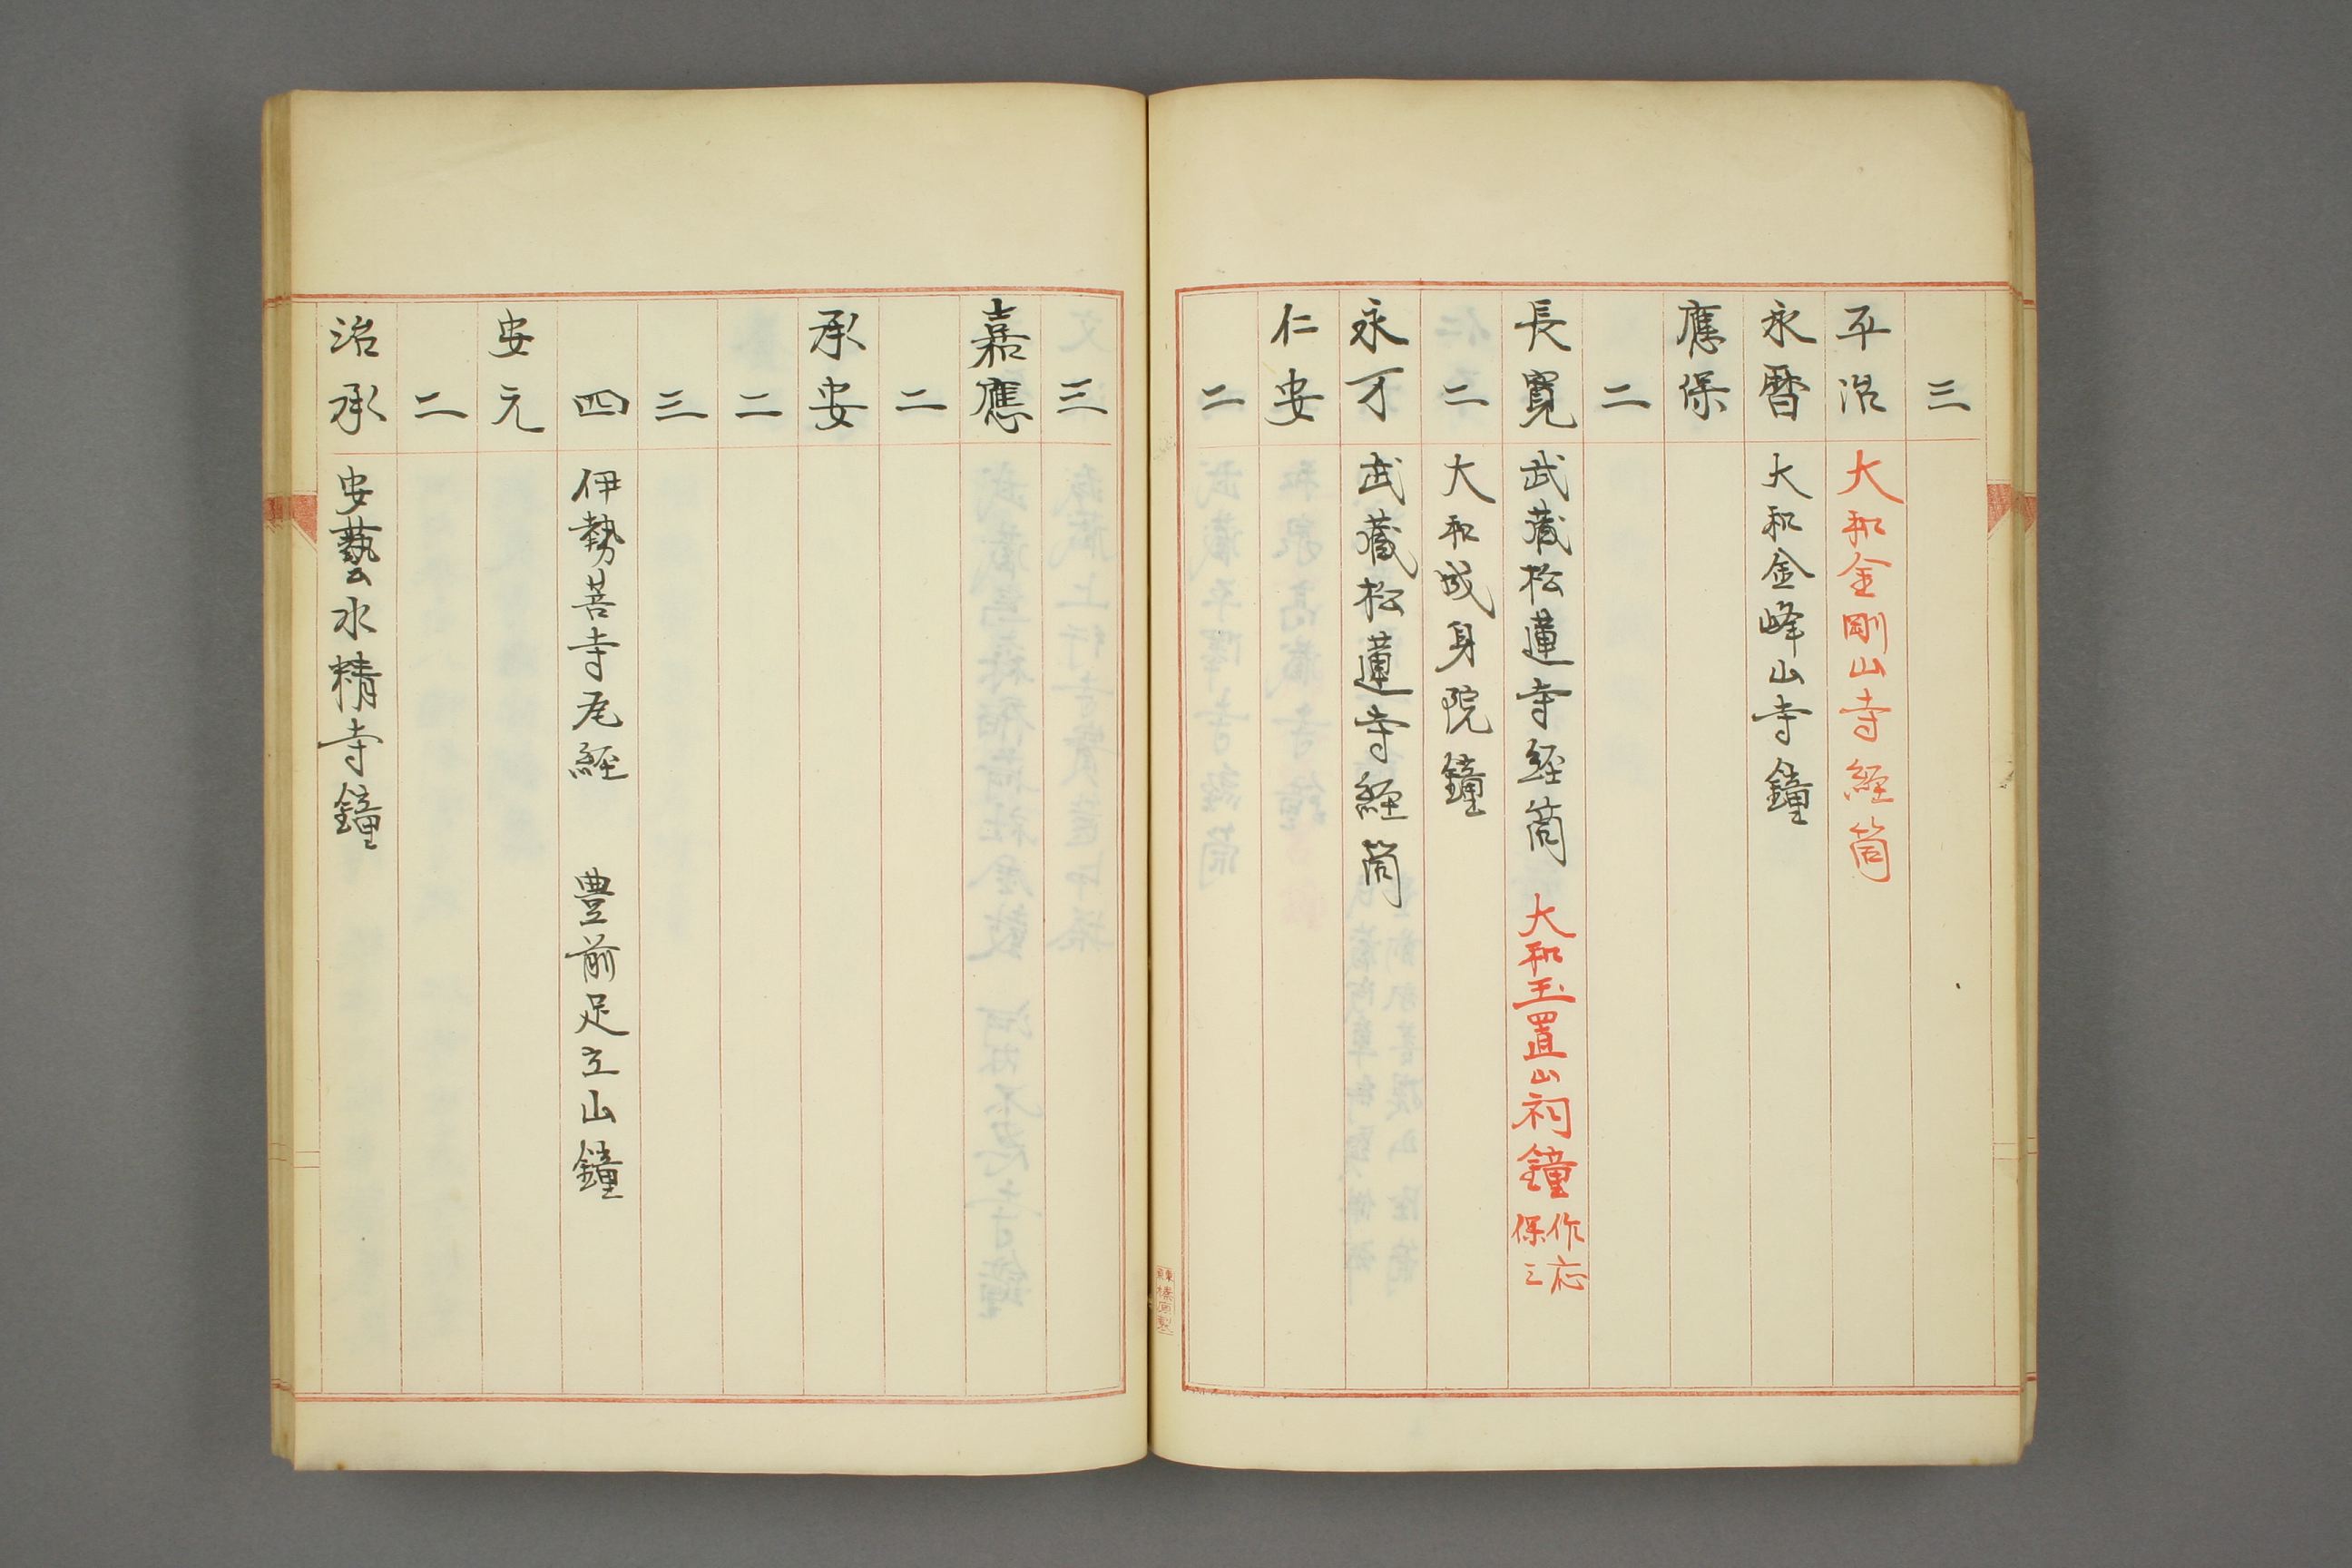 三
平治 大和金剛山寺経筒
永暦 大和金峰山寺鐘
應保
二
長寛 武蔵松蓮寺経筒 大和玉置山祠鐘 作応保三
二 大和成身院鐘
永万 武蔵松蓮寺経筒
仁安
二
三
嘉應
二
承安
二
三
四 伊勢菩寺瓦経 豊前足立山鐘
安元
二
治承 安藝水精寺鐘